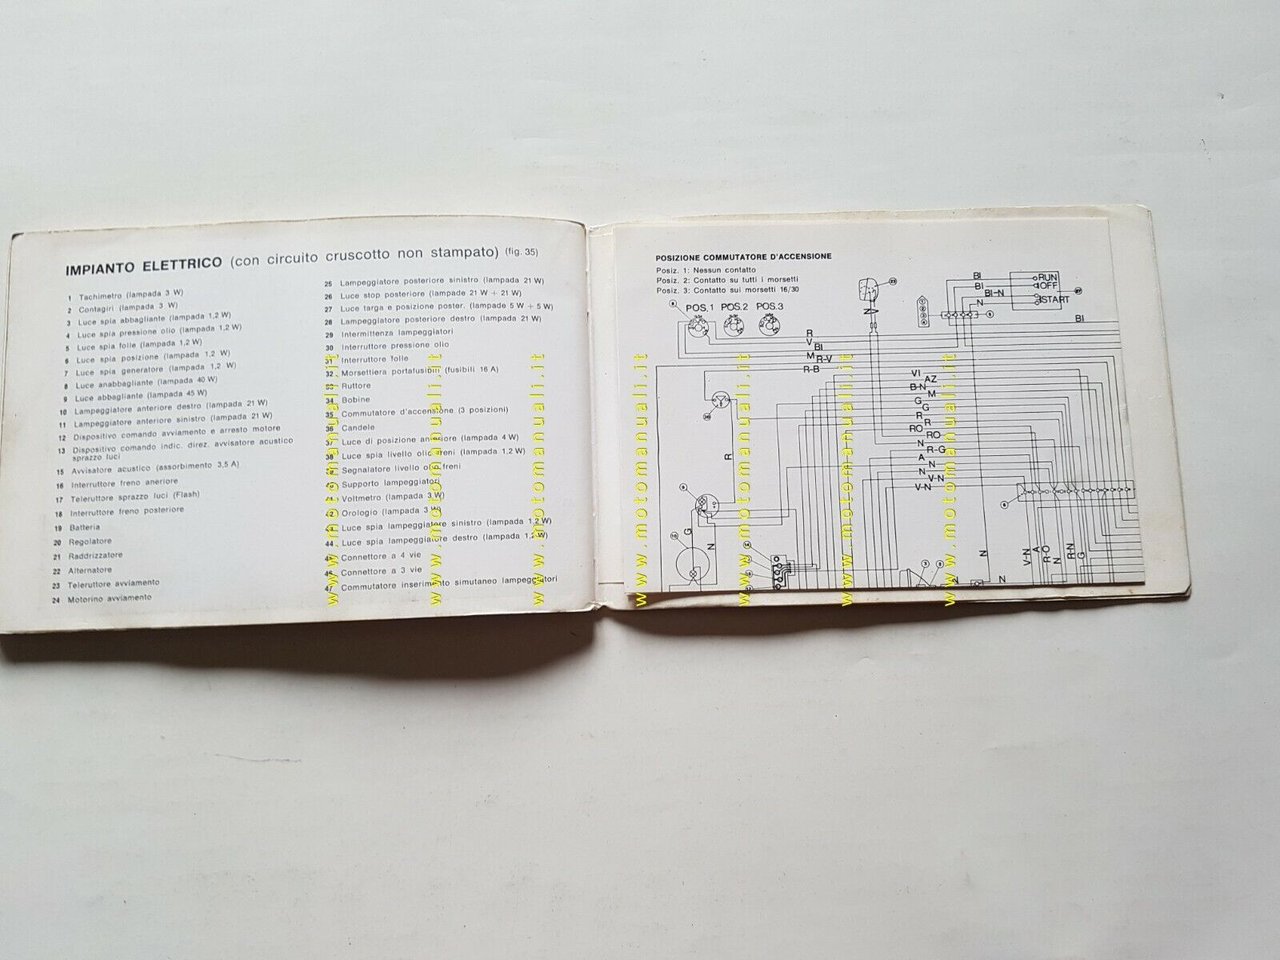 IMPIANTO ELETTRICO (con circuito cruscotto non stampato) (fig. 35)
1 Tachimetro (lampada 3 W)
2 Contagiri (lampada 3 W)
3 Luce spia abbagliante (lampada 1,2 W)
4 Luce spia pressione olio (lampada 1,2 W)
5 Luce spia folle (lampada 1,2 W)
6 Luce spia posizione (lampada 1,2 W)
7 Luce spia generatore (lampada 1,2 W)
8 Luce anabbagliante (lampada 40 W)
9 Luce abbagliante (lampada 45 W)
10 Lampeggiatore anteriore destro (lampada 21 W)
11 Lampeggiatore anteriore sinistro (lampada 21 W)
12 Dispositivo comando avviamento e arresto motore
13 Dispositivo comando indic. direz. avvisatore acustico
sprazzo luci
15 Avvisatore acustico (assorbimento 3,5 A)
16 Interruttore freno aneriore
17 Teleruttore sprazzo luci (Flash)
18 Interruttore freno posteriore
19 Batteria
20 Regolatore
21 Raddrizzatore
22 Alternatore
23 Teleruttore avviamento
24 Motorino avviamento
25 Lampeggiatore posteriore sinistro (lampada 21 W)
26 Luce stop posteriore (lampade 21 W + 21 W)
27 Luce targa e posizione poster. (lampade 5 W + 5 W)
28 Lampeggiatore posteriore destro (lampada 21 W)
29 Intermittenza lampeggiatori
30 Interruttore pressione olio
31 Interruttore folle
32 Morsettiera portafusibili (fusibili 16 A)
33 Ruttore
34 Bobine
35 Commutatore d'accensione (3 posizioni)
36 Candele
37 Luce di posizione anteriore (lampada 4 W)
38 Luce spia livello olio freni (lampada 1,2 W)
39 Segnalatore livello olio freni
40 Supporto lampeggiatori
41 Voltmetro (lampada 3 W)
42 Orologio (lampada 3 W)
43 Luce spia lampeggiatore sinistro (lampada 1,2 W)
44 Luce spia lampeggiatore destro (lampada 1,2 W)
45 Connettore a 4 vie
46 Connettore a 3 vie
47 Commutatore inserimento simutaneo lampeggiatori
POSIZIONE COMMUTATORE D'ACCENSIONE
Posiz. 1: Nessun contatto
Posiz. 2: Contatto su tutti i morsetti
Posiz. 3: Contatto sui morsetti 16/30
POS.1 POS.2 POS.3
BI RUN
BI OFF
BI-N
N START
BI
N
R
V BI
M R-V
R-B
VI
AZ
B-N M
G
G
R
R
RO RO
N
R-G
A
N
V-N
V-N
R
G
N
N
N
V-N
A
R-O
N
R-N
G
www.motomanuali.it
www.motomanuali.it
www.motomanuali.it
www.motomanuali.it
www.motomanuali.it
www.motomanuali.it
www.motomanuali.it